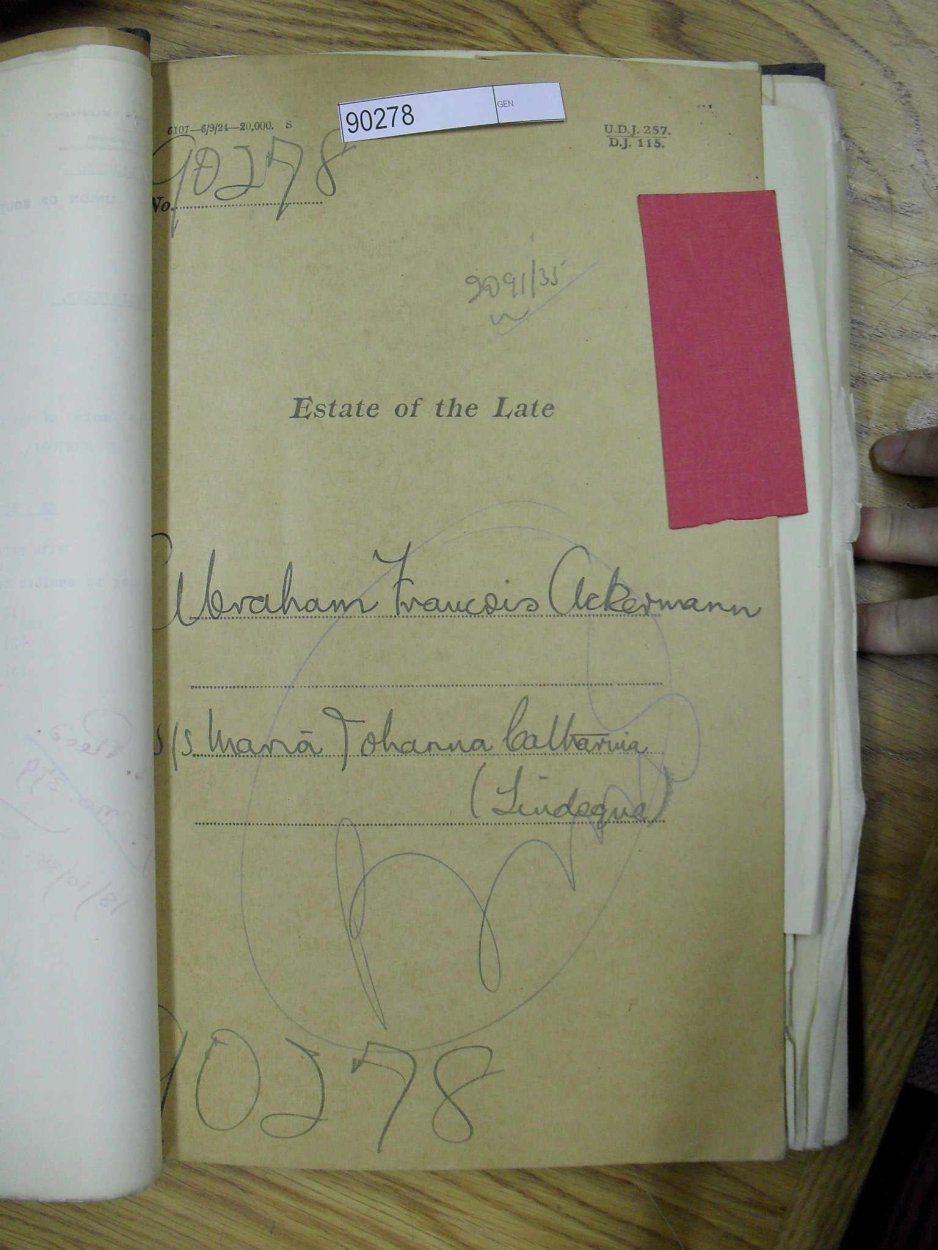 90278 GEN
6107—6/9/24—20,000. S
U.D.J. 257.
D.J. 115.
No. 90278
2091/35
Estate of the Late
Abraham Francois Ackermann
s/s Maria Johanna Catharina
(Lindeque)
90278